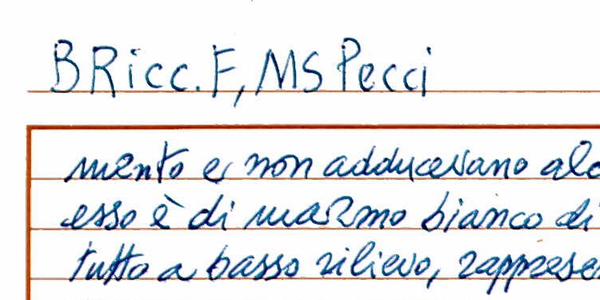 BRicc. F, MS Pecci
mento e non adducevano alc
esso è di marmo bianco di
tutto a basso rilievo, rappresen